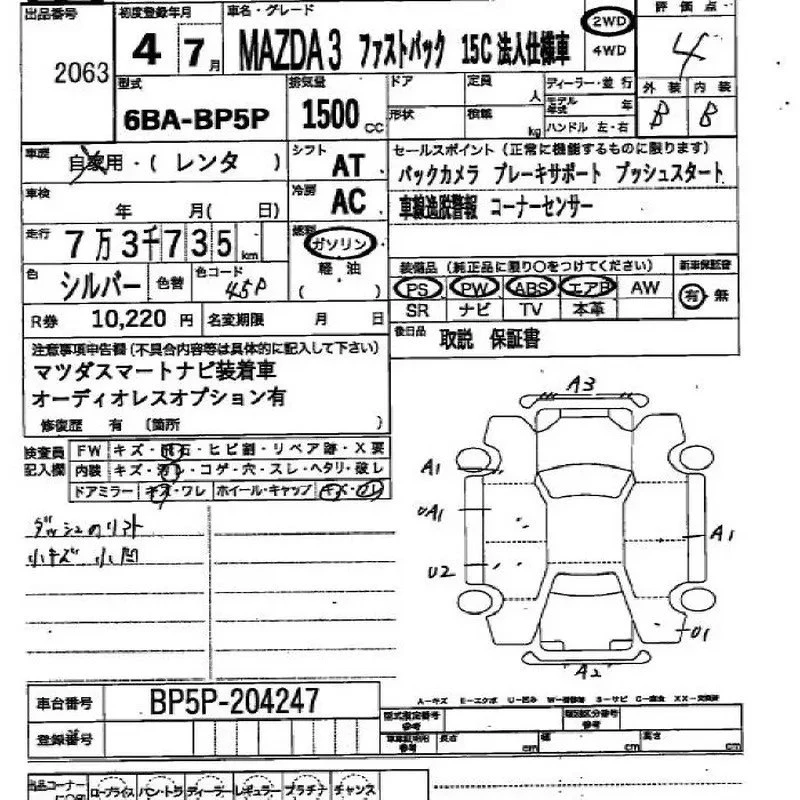 出品番号
2063
初度登録年月
4 7月
車名・グレード
MAZDA3 ファストバック 15C 法人仕様車
2WD
4WD
評価点
4
外装 内装
B B
型式
6BA-BP5P
排気量
1500 cc
ドア
形状
定員 人
積載 kg
ディーラー・並行
モデル年式 年
ハンドル 左・右
車歴
自家用・(レンタ)
シフト
AT
冷房
AC
車検
年 月(日)
走行
7万3千735km
燃料
ガソリン
軽油
( )
色
シルバー
色替
色コード
45P
R券 10,220円
名変期限 月 日
セールスポイント(正常に機能するものに限ります)
バックカメラ ブレーキサポート プッシュスタート
車線逸脱警報 コーナーセンサー
装備品(純正品に限り○をつけてください)
PS PW ABS エアB AW
SR ナビ TV 本革
新車保証書
有・無
後日品
取説 保証書
注意事項申告欄(不具合内容等は具体的に記入して下さい)
マツダスマートナビ装着車
オーディオレスオプション有
修復歴 有(箇所 )
検査員記入欄
FW キズ・飛石・ヒビ割・リペア跡・X要
内装 キズ・汚レ・コゲ・穴・スレ・ヘタリ・破レ
ドアミラー キズ・ワレ ホイール・キャップ キズ・ワレ
小キズ 小凹
A3
A1
UA1
U2
A1
U1
A2
A-キズ E-エクボ U-凹み
車台番号
BP5P-204247
登録番号
型式指定番号
参考
類別区分番号
参考
参考
長さ cm
幅 cm
高さ cm
出品コーナー
ロープライス バン・トラ ディーラー レギュラー プラチナ チャンス